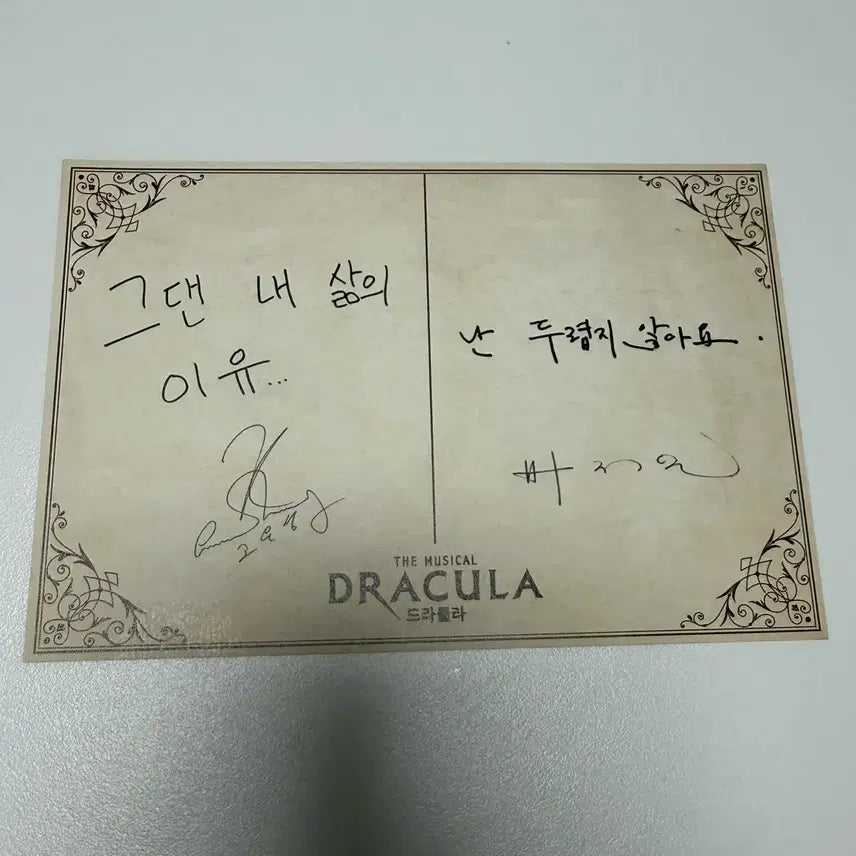 그댄 내 삶의
이유...
난 두렵지 않아요.
THE MUSICAL
DRACULA
드라큘라